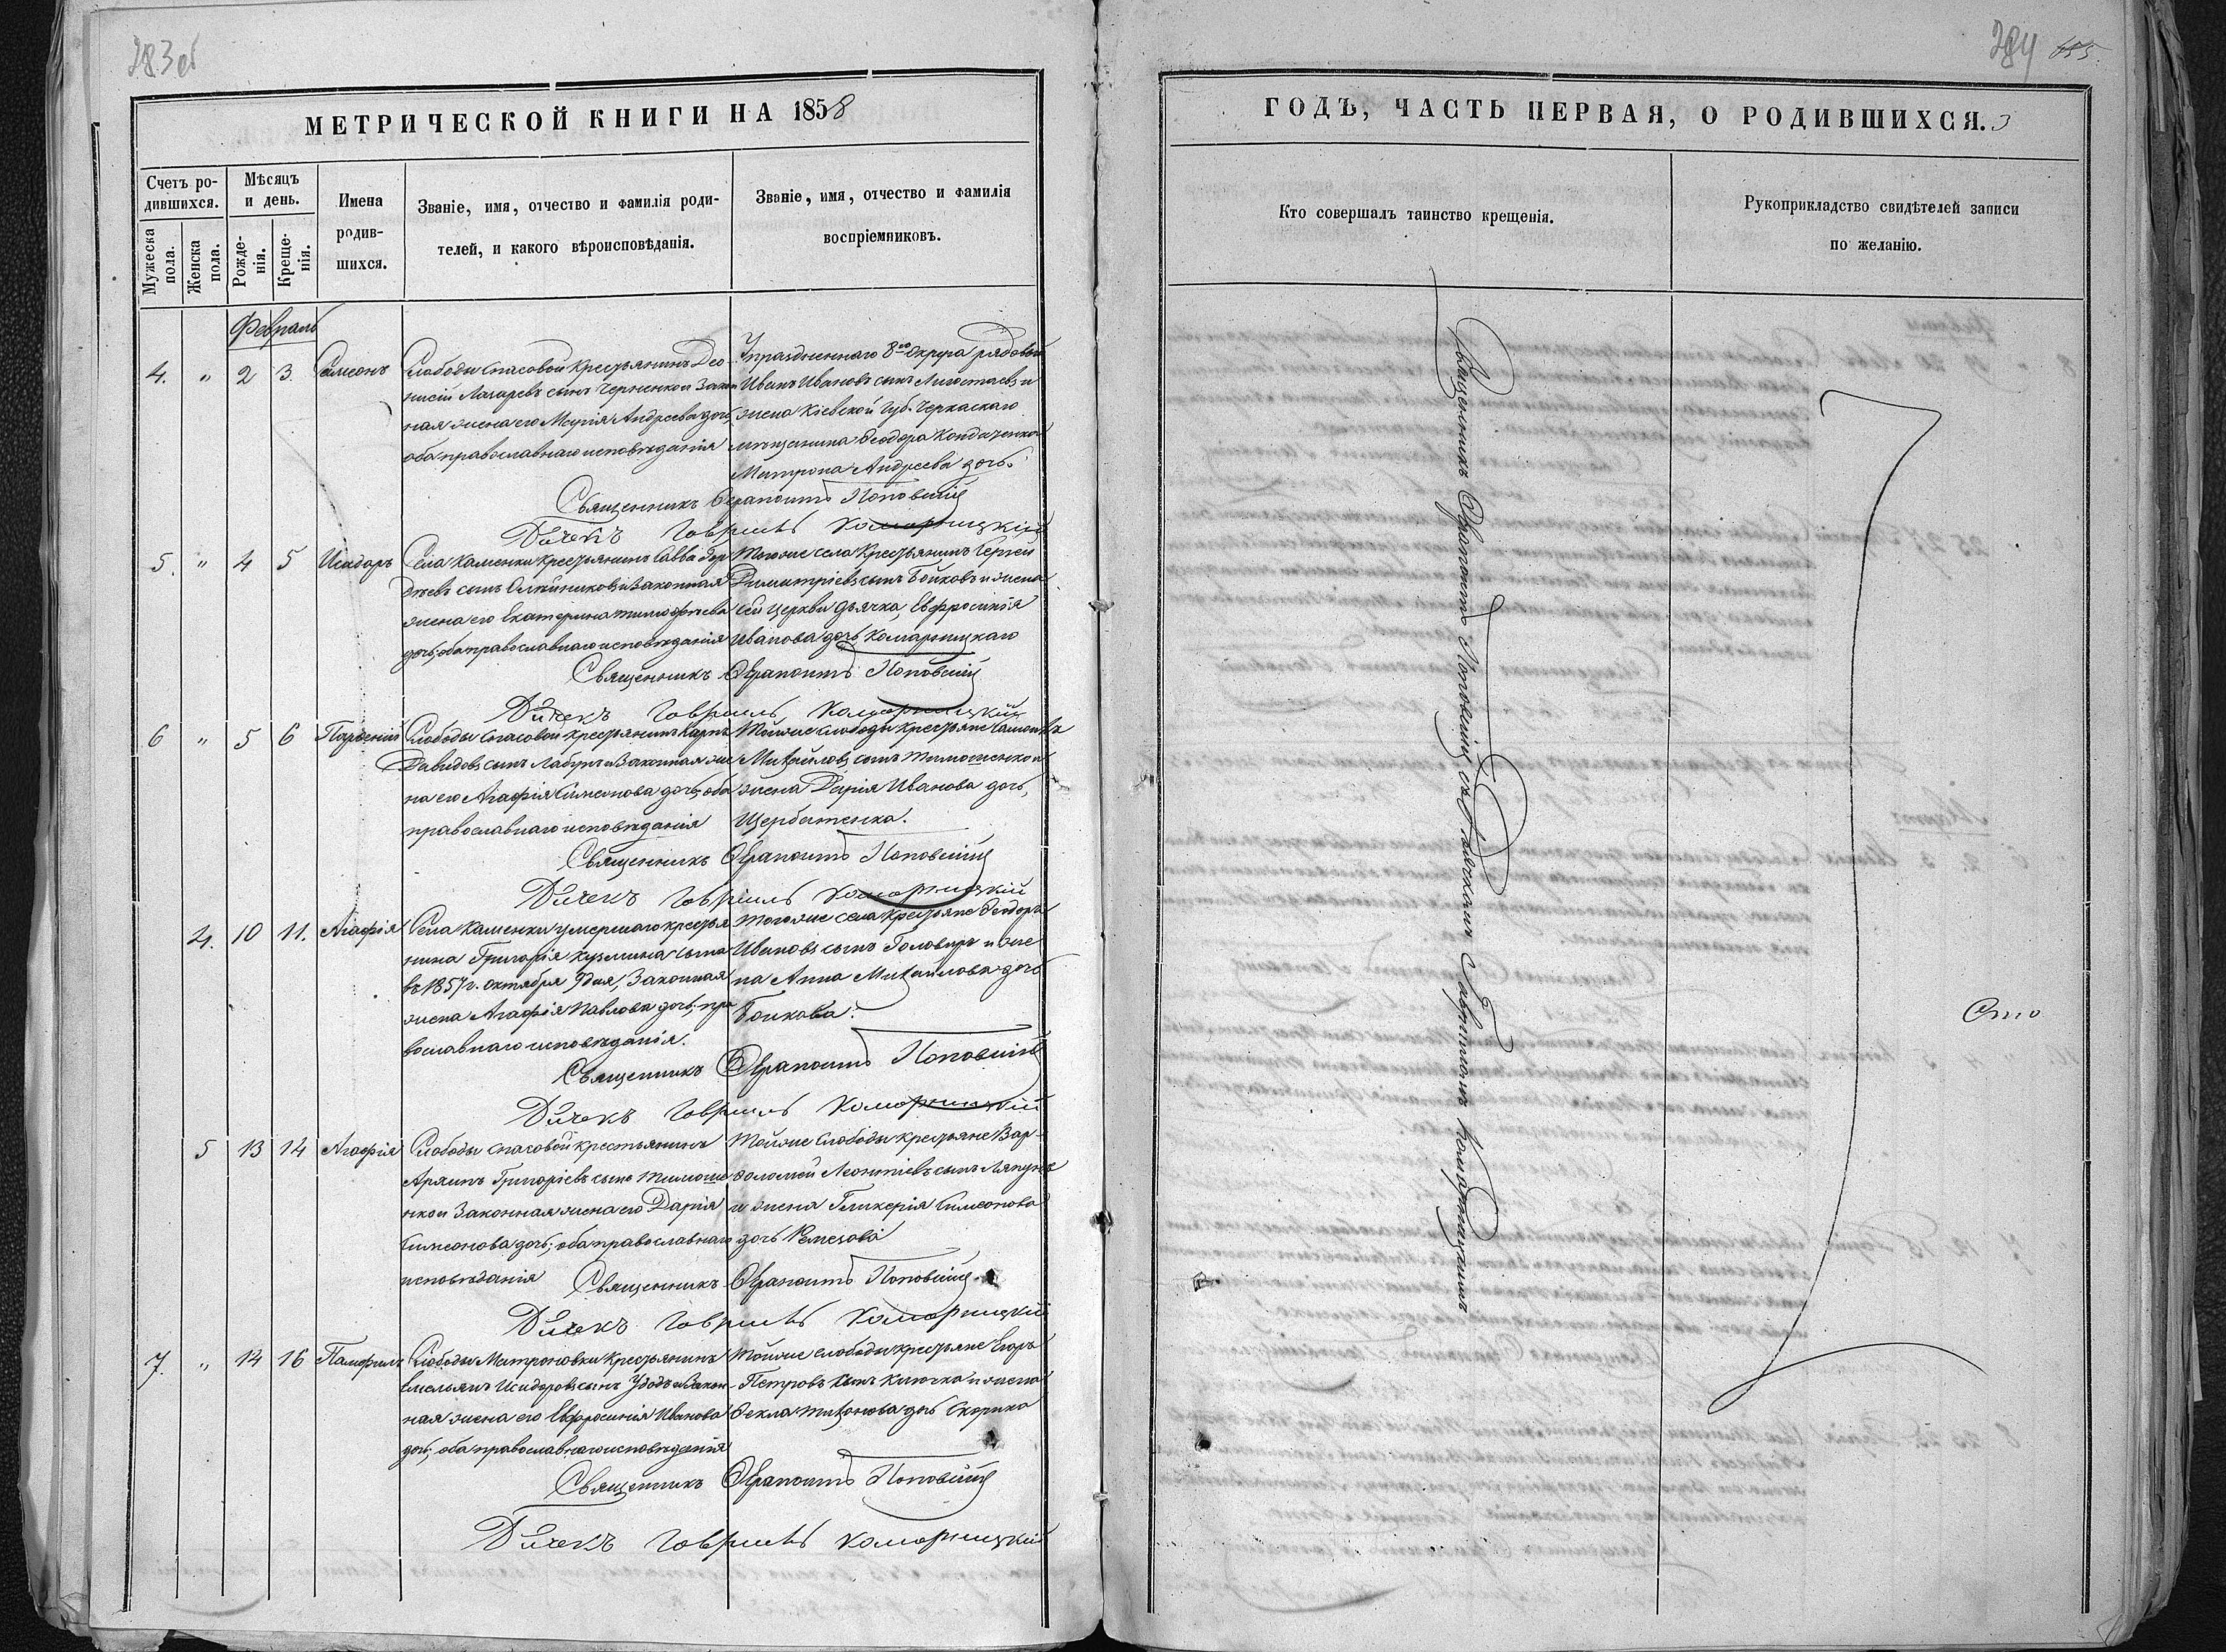 283 об
МЕТРИЧЕСКОЙ КНИГИ НА 1858
Счетъ ро-
дившихся.
Мужеска
пола.
Женска
пола.
Мѣсяцъ
и день.
Рожде-
нія.
Креще-
нія.
Имена
родив-
шихся.
Званіе, имя, отчество и фамилія роди-
телей, и какого вѣроисповѣданія.
Званіе, имя, отчество и фамилія
воспріемниковъ.
Февраль
4. " 2 3. Симеонъ
Слободы Спасовой Крестьянинъ Део-
нисій Лазаревъ сынъ Черненкои Закон
ная жена его Марія Андреева дочь,
оба православнаго исповѣданія
Упраздненнаго 8го Округа рядовой
Иванъ Ивановъ сынъ и
жена Кіевской Губ. Черкаскаго
мѣщанина Ѳеодора
Матрона Андреева дочь.
Священникъ Ферапонтъ Поповскій
Дьячекъ Гавріилъ Комарницкій
5. " 4 5 Исидоръ
Села Каменки Крестьянинъ Савва Гор
дѣевъ сынъ Олейниковъ и Законная
жена его Екатерина Тимофѣева
дочь, оба православнаго исповѣданія
Тогоже села Крестьянинъ Сергей
Димитріевъ сынъ Бойковъ и жена
сей церкви дьячка, Евфросинія
Иванова дочь Комарницкаго
Священникъ Ферапонтъ Поповскій
Дьячекъ Гавріилъ Комарницкій
6 " 5 6 Парѳеній
Слободы Спасовой Крестьянинъ Карпъ
Давидовъ сынъ Лабунъ и Законная же
на его Агафія Симеонова дочь, оба
православнаго исповѣданія
Тойже слободы Крестьяне
Михайловъ сынъ Тимошенкои
жена Дарія Иванова дочь,
Щербатенка.
Священникъ Ферапонтъ Поповскій
Дьячекъ Гавріилъ Комарницкій
4. 10 11. Агафія
Села Каменки умершаго крестья
нина Григорія Кузмина сына
въ 1857 г. октября 9 дня, Законная
жена Агафія Павлова дочь, пра
вославнаго исповѣданія.
Тогоже села Крестьяне Ѳеодоръ
Ивановъ сынъ и же
на Анна Михайлова дочь
Бойкова.
Священникъ Ферапонтъ Поповскій
Дьячекъ Гавріилъ Комарницкій
5 13 14 Агафія
Слободы Спасовой крестьянинъ
Григоріевъ сынъ Тимоше
нкои Законная жена его Дарія
Симеонова дочь; оба православнаго
исповѣданія
Тойже слободы крестьяне Вар-
ѳоломей Леонтіевъ сынъ Ляпунъ
и жена Гликерія Симеонова
дочь Ремезова
Священникъ Ферапонтъ Поповскій
Дьячекъ Гавріилъ Комарницкій
7. " 14 16 Памфилъ
Слободы Матроновки Крестьянинъ
Емельянъ Исидоровъ сынъ Удодъ и Закон-
ная жена его Евфросинія Иванова
дочь, оба православнаго исповѣданія
Тойже слободы крестьяне Егоръ
Петровъ сынъ Клочко и жена
Ѳекла Тихонова дочь Скорика
Священникъ Ферапонтъ Поповскій
Дьячекъ Гавріилъ Комарницкій
284 155.
ГОДЪ, ЧАСТЬ ПЕРВАЯ, О РОДИВШИХСЯ. 3
Кто совершалъ таинство крещенія.
Рукоприкладство свидѣтелей записи
по желанію.
Священникъ Ферапонтъ Поповскій съ дьячкомъ Гавріиломъ Комарницкимъ